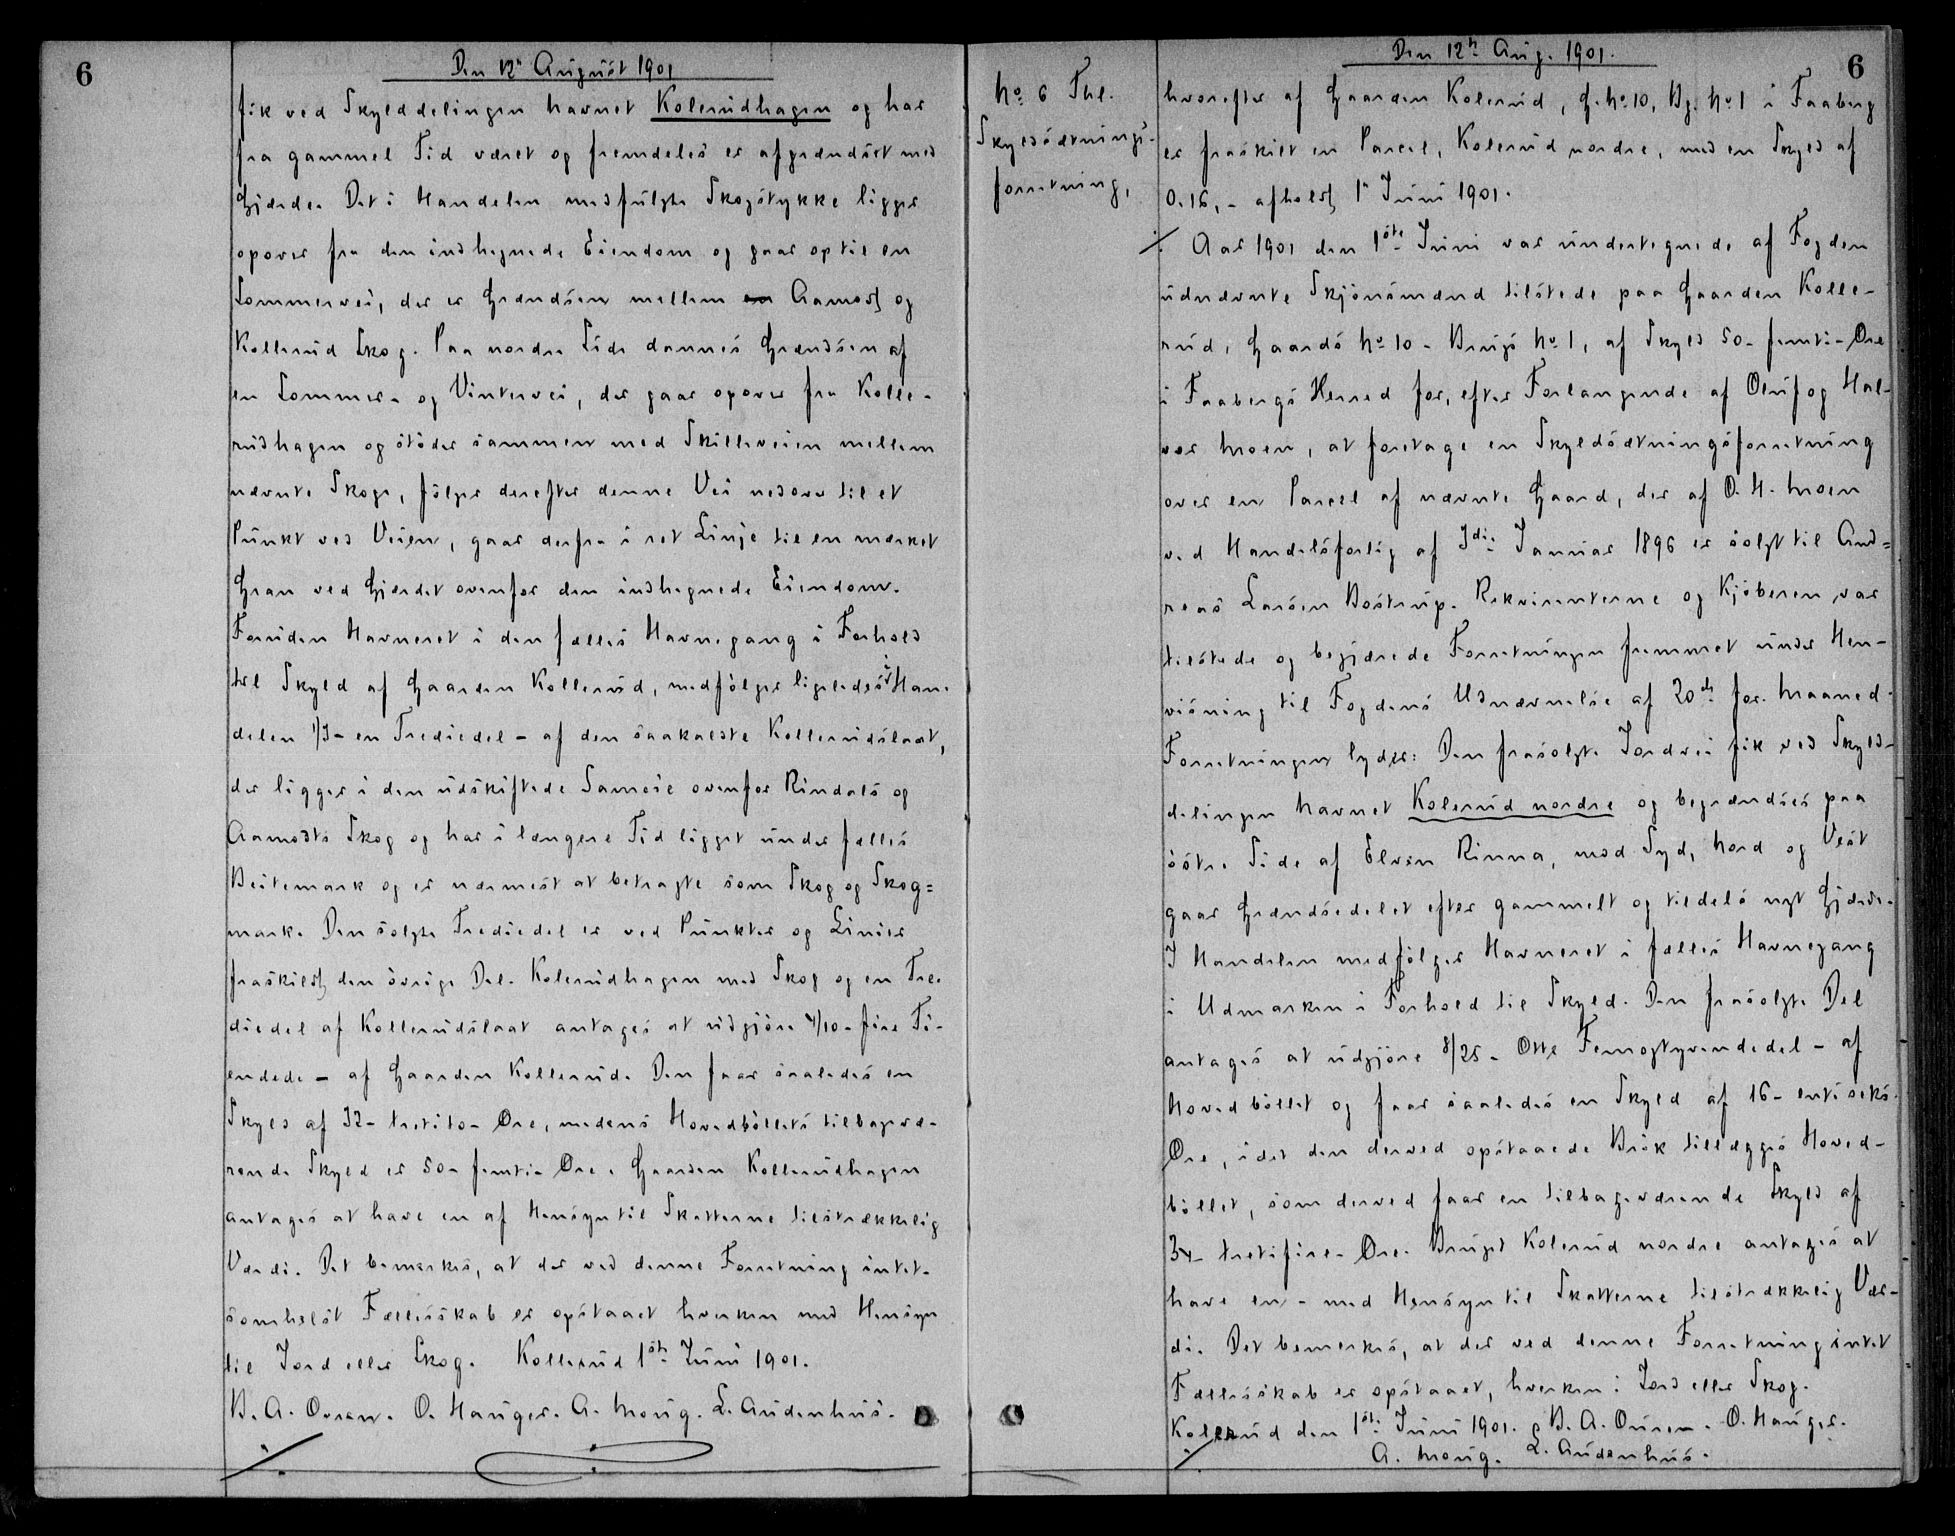 6
Den 12te August 1901
fik ved Skylddelingen Navnet Kolerudhagen og har
fra gammel Tid været og fremdeles er afgrændset med
Gjærde. Det i Handelen medfulgte Skogstykke ligger
opover fra den indhegnede Eiendom og gaar op til en
Sommervei, der er Grændsen mellem en Aamodt og
Kollerud Skog. Paa nordre Side dannes Grændsen af
en Sommer- og Vintervei, der gaar opover fra Kolle-
rudhagen og støder sammen med Skilleveien mellem
nævnte Skoge, følger derefter denne Vei nedover til et
Punkt ved Veien, gaar derfra i ret Linje til en mærket
Gran ved Gjærdet ovenfor den indhegnede Eiendom.
Foruden Havneret i den fælles Havnegang i Forhold
til Skyld af Gaarden Kollerud, medfølger ligeledes i Han-
delen 1/3 - en Trediedel - af den saakaldte Kollerudslaat,
der ligger i den udskiftede Sameie ovenfor Rindals og
Aamodts Skog og har i længere Tid ligget under fælles
Beitemark og er nærmest at betragte som Skog og Skog=
mark. Den solgte Trediedel er ved Punkter og Linier
fraskildt den øvrige Del. Kolerudhagen med Skog og en Tre-
diedel af Kollerudslaat antages at udgjøre 4/10 - fire Ti-
endede - af Gaarden Kollerud. Den faar saaledes en
Skyld af 32 - tretito - Øre, medens Hovedbøllets tilbagevæ-
rende Skyld er 50 - femti - Øre. Gaarden Kollerudhagen
antages at have en af Hensyn til Skatterne tilstrækkelig
Værdi. Det bemærkes, at der ved denne Forretning intet-
somhelst Fællesskab er opstaaet hverken med Hensyn
til Jord eller Skog. Kollerud 1ste Juni 1901.
B. A. Ouren. O. Hauger. A. Moug. L. Audenhus.
Den 12te Aug. 1901.
6
No 6 Thl.
Skyldsætnings-
forretning,
hvorefter af Gaarden Kolerud, G. No 10, Bg. No 1 i Faaberg
er fraskilt en Parcel, Kolerud nordre, med en Skyld af
0.16,- afholdt 1ste Juni 1901.
Aar 1901 den 1ste Juni var undertegnede af Fogden
udnævnte Skjønsmænd tilstede paa Gaarden Kolle-
rud, Gaards No 10 - Brugs No 1, af Skyld 50 - femti - Øre
i Faabergs Herred for, efter Forlangende af Oluf og Hal-
vor Moen, at foretage en Skyldsætningsforretning
over en Parcel af nævnte Gaard, der af O. H. Moen
ved Handelsforlig af 3die Januar 1896 er solgt til And=
reas Larsen Bostrup. Rekvirenterne og Kjøberen var
tilstede og begjærede Forretningen fremmet under Hen-
visning til Fogdens Udnævnelse af 20de for. Maaned.
Forretningen lyder: Den frasolgte Jordvei fik ved Skyld-
delingen Navnet Kolerud nordre og begrændses paa
østre Side af Elven Rinna, mod Syd, Nord og Vest
gaar Grændsedelet efter gammelt og tildels nyt Gjærde.
I Handelen medfølger Havneret i fælles Havnegang
i Udmarken i Forhold til Skyld. Den frasolgte Del
antages at udgjøre 8/25 - Otte Femogtyvendedel - af
Hovedbøllet og faar saaledes en Skyld af 16 - enti seks -
Øre, idet den derved opstaaede Brøk tillægges Hoved-
bøllet, som derved faar en tilbageværende Skyld af
34 - tretifire - Øre. Bruget Kolerud nordre antages at
have en - med Hensyn til Skatterne tilstrækkelig Vær-
di. Det bemerkes, at der ved denne Forretning intet
Fællesskab er opstaaet, hverken i Jord eller Skog.
Kolerud den 1ste Juni 1901. B. A. Ouren. O. Hauger.
A. Moug. L. Audenhus.